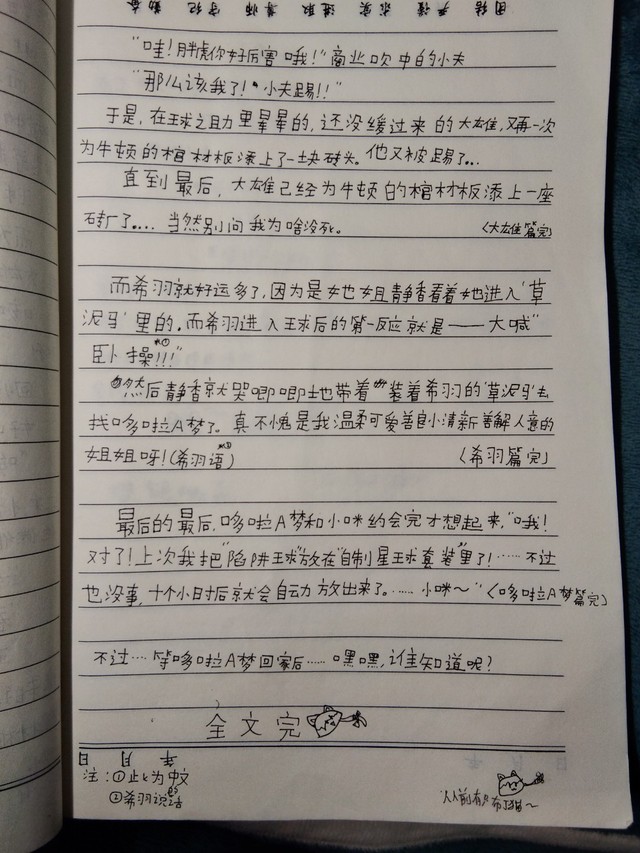 团结 严谨 求实 进取 尊师 守纪 勤奋
"哇!胖虎你好厉害哦!"商业吹中的小夫
"那么该我了!"小夫踢!!"
于是,在球之助里晕晕的,还没缓过来的大雄,又再一次
为牛顿的棺材板添上了一块砖头。他又被踢了...
直到最后,大雄已经为牛顿的棺材板添上一座
砖厂了.... 当然别问我为啥没死。 〈大雄篇完〉
而希羽就好运多了,因为是她姐静香看着她进入'草
泥马'里的.而希羽进入球后的第一反应就是——大喊"
卧槽!!!"※①
然后静香就哭唧唧地带着装着希羽的'草泥马'去
找哆啦A梦了。真不愧是我温柔可爱善良小清新善解人意的
姐姐呀!(希羽语)※② 〈希羽篇完〉
最后的最后,哆啦A梦和小咪约会完才想起来,"哦!
对了!上次我把"陷阱球"放在"自制星球套装"里了!……不过
也没事,十个小时后就会自动放出来了。…… 小咪~"〈哆啦A梦篇完〉
不过… 等哆啦A梦回家后…… 嘿嘿,谁知道呢?
全文完
年 月 日
注:①此为中文
②希羽说的话
从前有只布丁猫~